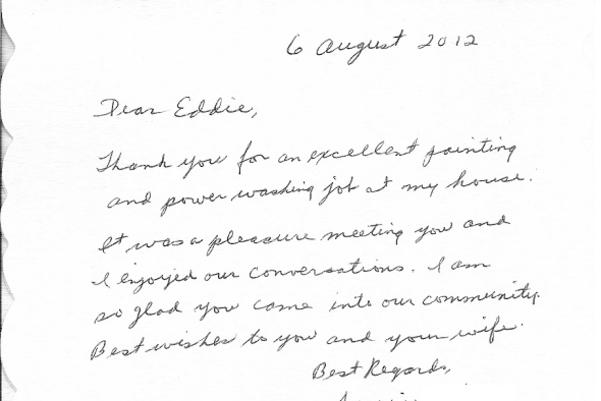 6 August 2012
Dear Eddie,
Thank you for an excellent painting
and power washing job at my house.
It was a pleasure meeting you and
I enjoyed our conversations. I am
so glad you came into our community.
Best wishes to you and your wife.
Best Regards,